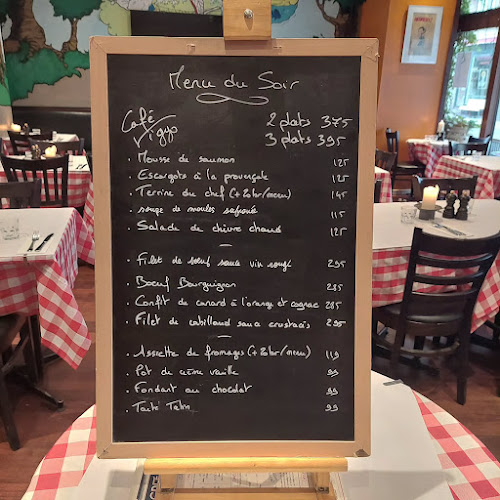 Menu du Soir
Café Vigyo
2 plats 375
3 plats 395
• Mousse de saumon 125
• Escargots à la provençale 125
• Terrine du chef (+20kr/menu) 145
• soupe de moules safranée 115
• Salade de chèvre chaud 125
• Filet de bœuf sauce vin rouge 295
• Bœuf Bourguignon 285
• Confit de canard à l'orange et cognac 285
• Filet de cabillaud sauce crustacés 295
• Assiette de fromages (+20kr/menu) 119
• Pot de crème vanille 99
• Fondant au chocolat 99
• Tarte Tatin 99